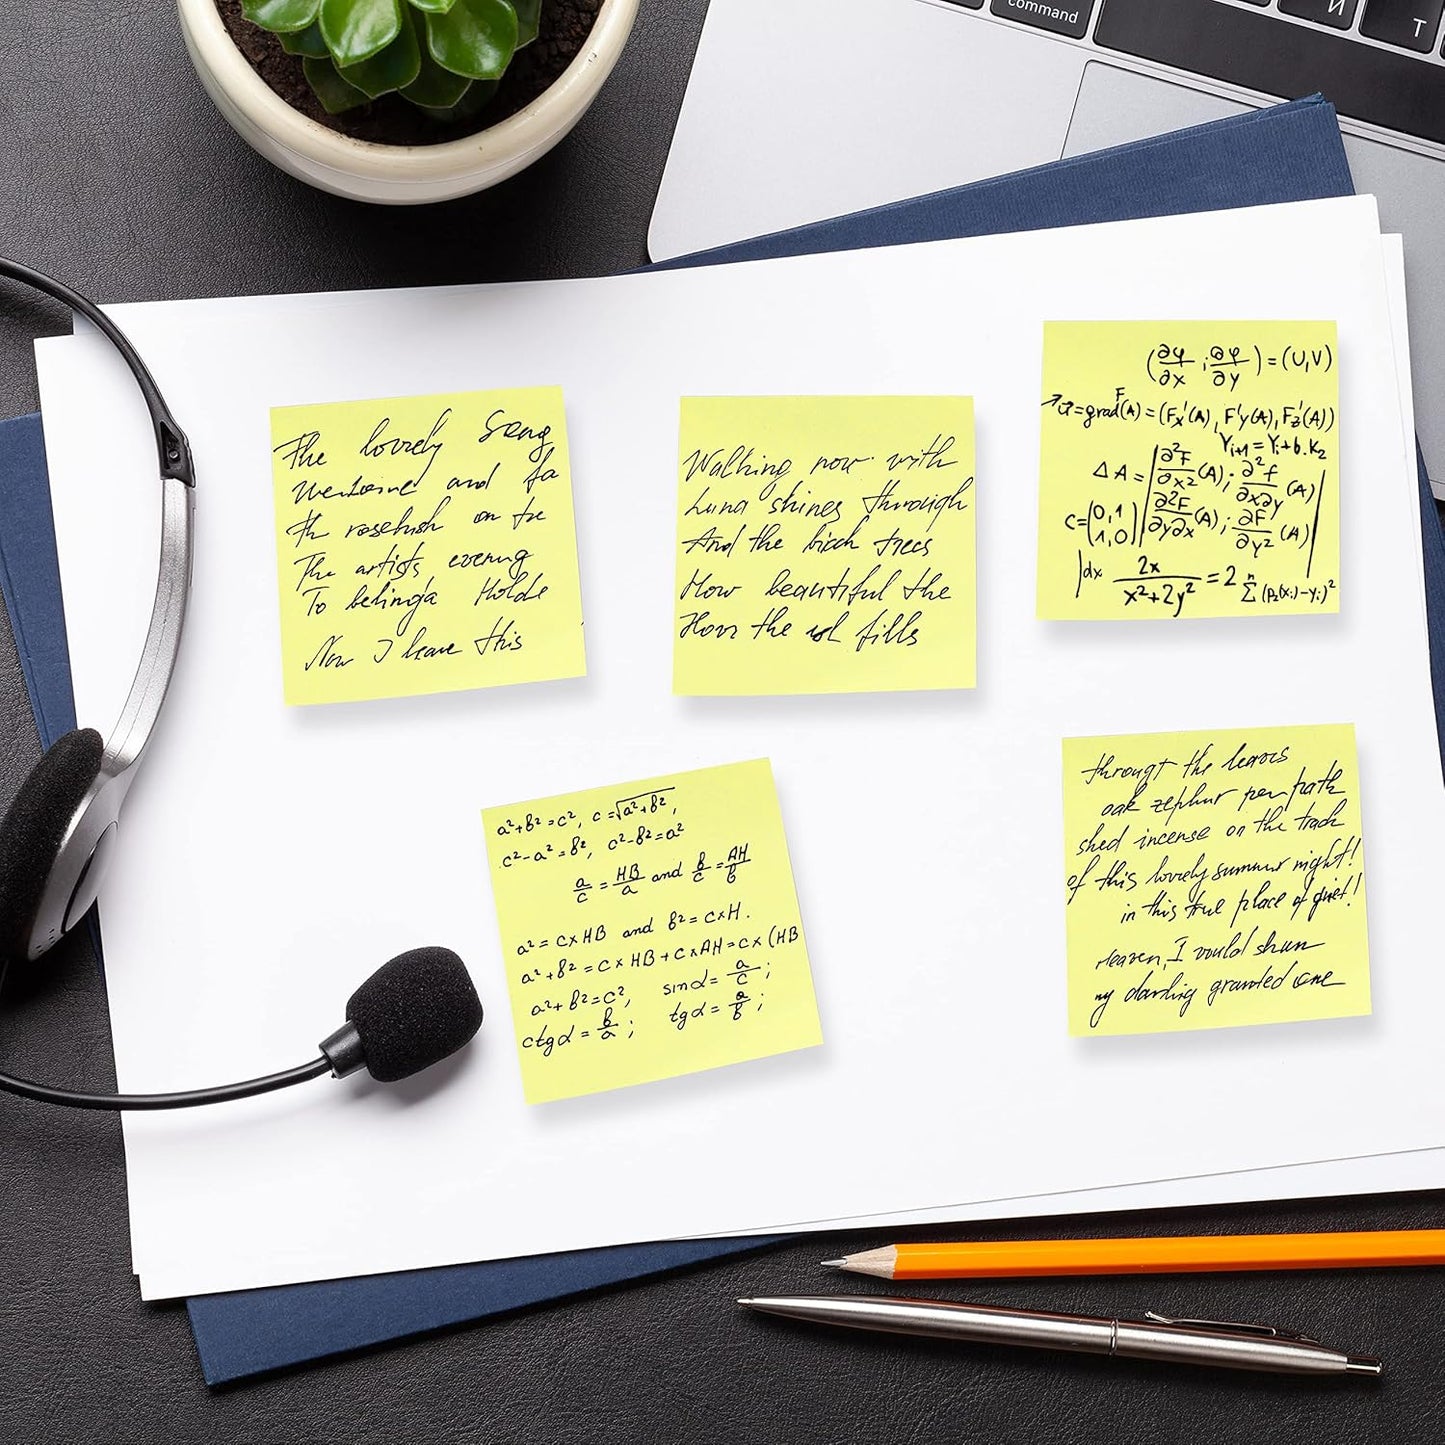 command
И
Т
The lovely Song
and fa
th rosebush on tre
The artists evening
To belinga Holde
Now I leave this
Walking now with
Luna shines through
And the birch trees
How beautiful the
How the fills
(∂φ/∂x ; ∂φ/∂y) = (U,V)
u⃗=grad F(A)=(Fx'(A), F'y(A), Fz'(A))
Yi+1=Yi+b.K2
ΔA=|∂²F/∂x²(A); ∂²f/∂x∂y(A)|
C=(0,1 1,0) |∂²F/∂y∂x(A); ∂F/∂y²(A)|
|dx 2x/x²+2y² =2 n∑(P2(xi)-yi)²
a²+b²=c², c=√a²+b²,
c²-a²=b², c²-b²=a²
a/c = HB/a and b/c = AH/b
a²=c×HB and b²=c×H.
a²+b²=c×HB+c×AH=c×(HB
a²+b²=c², sinα=a/c;
ctgα=b/a; tgα=a/b;
througt the leaves
oak zephur pen path
shed incense on the track
of this lovely summer night!
in this true place of quiet!
Heaven, I would shun
my darling granted one